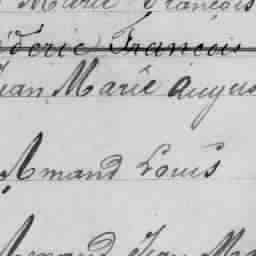 Marie François
éderic François
Jean Marie Augus
Armand Louis
Armand Jean Ma